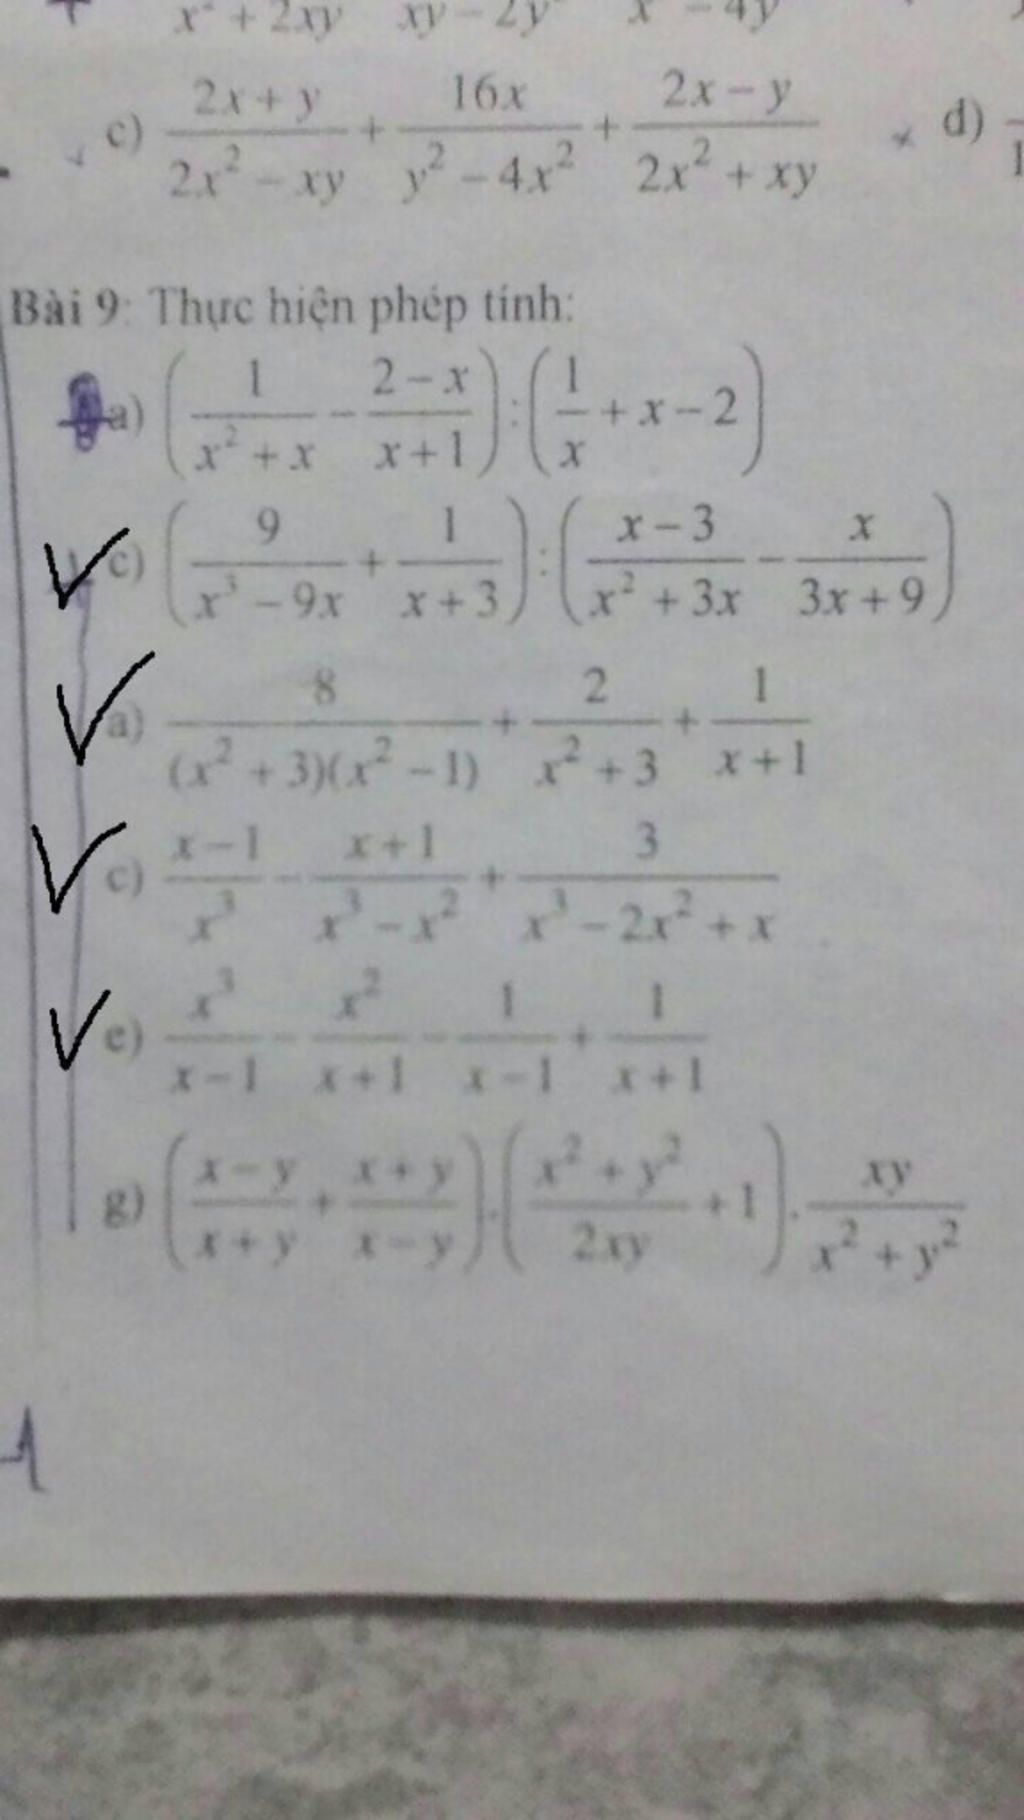 x² + 2xy   xy − 2y   x² − 4y
c) \frac{2x+y}{2x²−xy} + \frac{16x}{y²−4x²} + \frac{2x−y}{2x²+xy}   d)
Bài 9: Thực hiện phép tính:
a) (\frac{1}{x²+x} − \frac{2−x}{x+1}) : (\frac{1}{x} + x − 2)
c) (\frac{9}{x³−9x} + \frac{1}{x+3}) : (\frac{x−3}{x²+3x} − \frac{x}{3x+9})
a) \frac{8}{(x²+3)(x²−1)} + \frac{2}{x²+3} + \frac{1}{x+1}
c) \frac{x−1}{x³} − \frac{x+1}{x³−x²} + \frac{3}{x³−2x²+x}
e) \frac{x³}{x−1} − \frac{x²}{x+1} − \frac{1}{x−1} + \frac{1}{x+1}
g) (\frac{x−y}{x+y} + \frac{x+y}{x−y}) . (\frac{x²+y²}{2xy} + 1) . \frac{xy}{x²+y²}